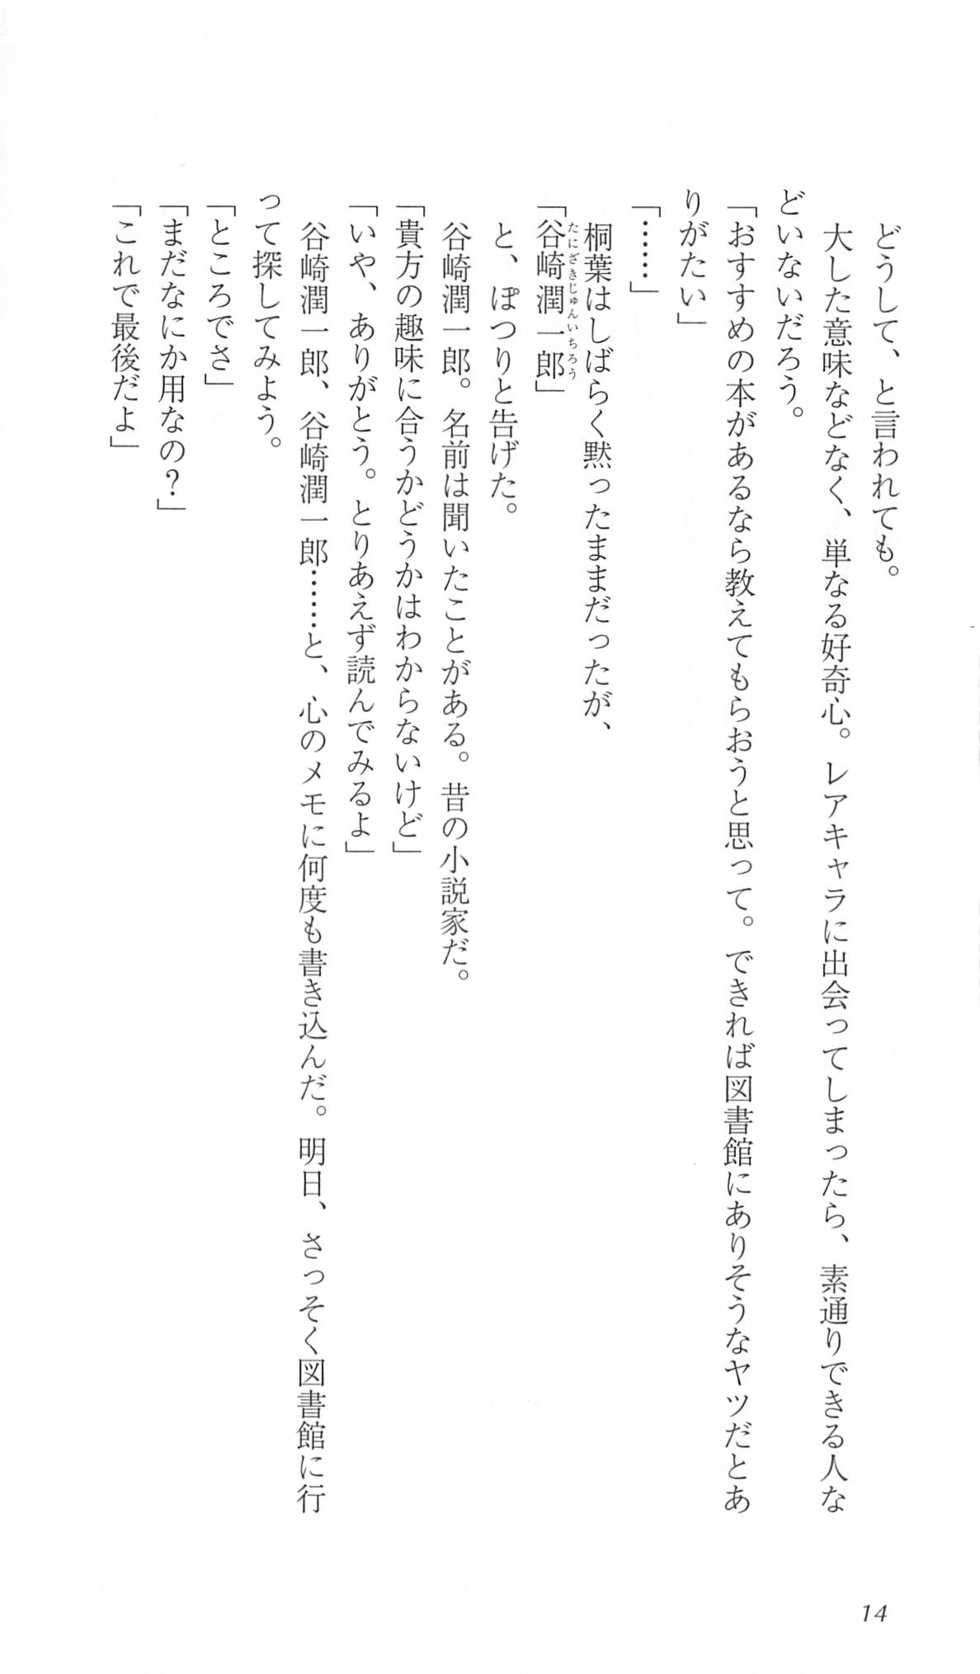 どうして、と言われても。
大した意味などなく、単なる好奇心。レアキャラに出会ってしまったら、素通りできる人な
どいないだろう。
「おすすめの本があるなら教えてもらおうと思って。できれば図書館にありそうなヤツだとあ
りがたい」
「……」
桐葉はしばらく黙ったままだったが、
「谷崎潤一郎」
たにざきじゅんいちろう
と、ぽつりと告げた。
谷崎潤一郎。名前は聞いたことがある。昔の小説家だ。
「貴方の趣味に合うかどうかはわからないけど」
「いや、ありがとう。とりあえず読んでみるよ」
谷崎潤一郎、谷崎潤一郎……と、心のメモに何度も書き込んだ。明日、さっそく図書館に行
って探してみよう。
「ところでさ」
「まだなにか用なの?」
「これで最後だよ」
14